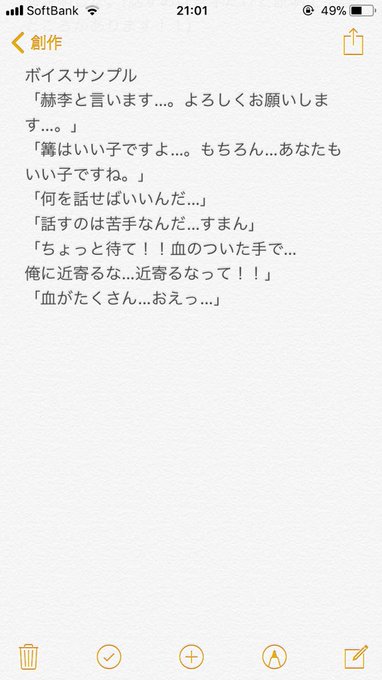 SoftBank 21:01 49%
創作
ボイスサンプル
「赫李と言います…。よろしくお願いしま
す…。」
「篝はいい子ですよ…。もちろん…あなたも
いい子ですね。」
「何を話せばいいんだ…」
「話すのは苦手なんだ…すまん」
「ちょっと待て！！血のついた手で…
俺に近寄るな…近寄るなって！！」
「血がたくさん…おえっ…」